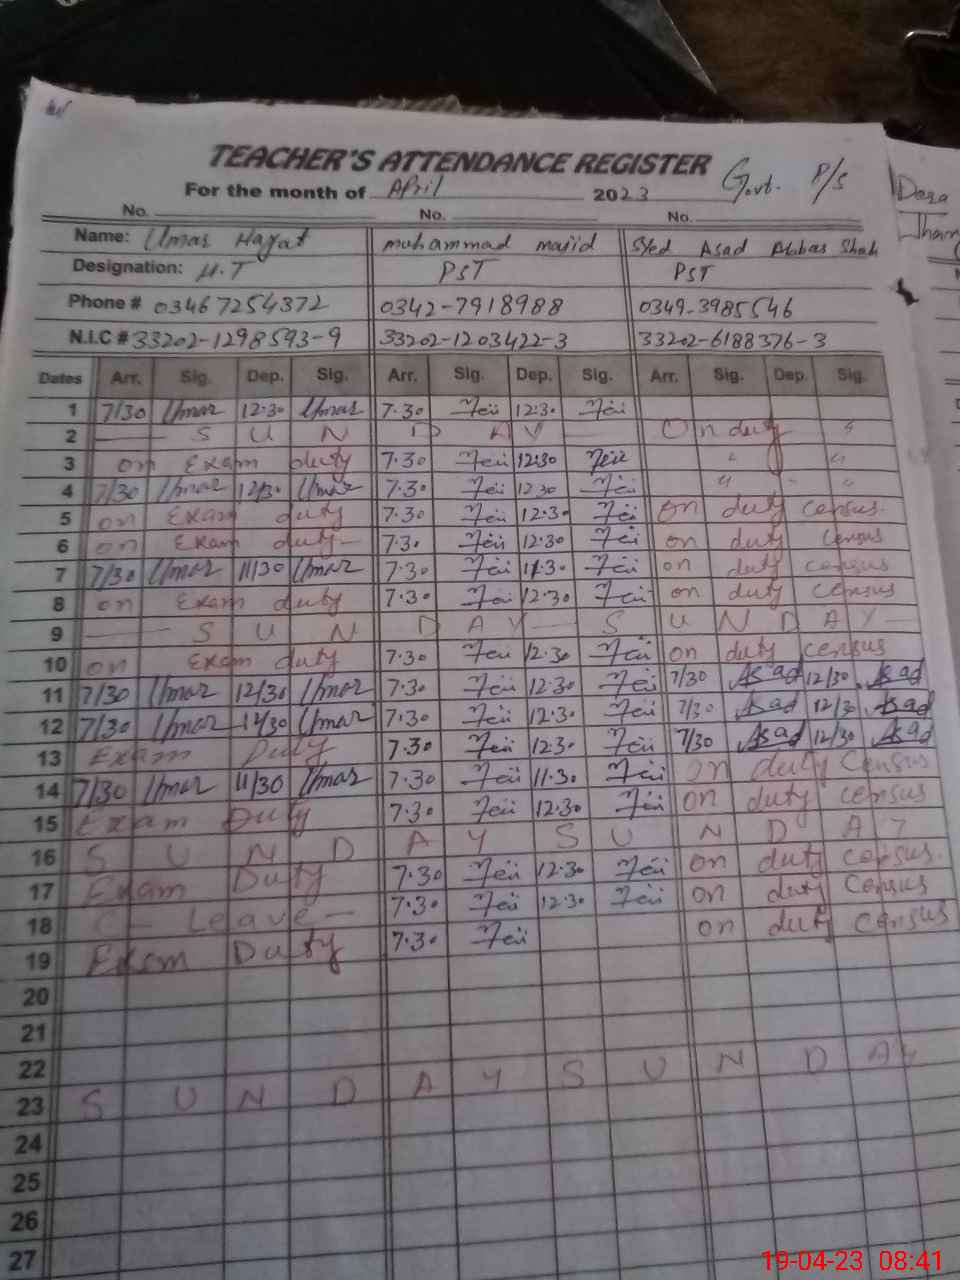 TEACHER'S ATTENDANCE REGISTER
For the month of April 2023 Govt. P/S
No. No. No.
Name: Umar Hayat muhammad majid Syed Asad Abbas Shah
Designation: H.T PST PST
Phone # 03467254372 0342-7918988 0349-3985546
N.I.C # 33202-1298593-9 33202-1203422-3 33202-6188376-3
Dates Arr. Sig. Dep. Sig. Arr. Sig. Dep. Sig. Arr. Sig. Dep. Sig.
1 7/30 Umar 12:30 Umar 7.30 12:30
2 S U N D A Y On duty "
3 on Exam duty 7.30 12:30 " "
4 7/30 Umar 12/30 Umar 7.30 12:30 " " "
5 on Exam duty 7.30 12.30 on duty census
6 on Exam duty 7.30 12:30 on duty census
7 7/30 Umar 11/30 Umar 7.30 11.30 on duty census
8 on Exam duty 7.30 12:30 on duty census
9 S U N D A Y S U N D A Y
10 on Exam duty 7.30 12.30 on duty census
11 7/30 Umar 12/30 Umar 7.30 12.30 7/30 Asad 12/30 Asad
12 7/30 Umar 12/30 Umar 7.30 12.30 7/30 Asad 12/30 Asad
13 Exam Duty 7.30 12.30 7/30 Asad 12/30 Asad
14 7/30 Umar 11/30 Umar 7.30 11.30 on duty Census
15 Exam Duty 7.30 12.30 on duty census
16 S U N D A Y S U N D A Y
17 Exam Duty 7.30 12.30 on duty census
18 C- Leave 7.30 12.30 on duty Census
19 Exam Duty 7.30 on duty Census
20
21
22
23 S U N D A Y S U N D A Y
24
25
26
27
Dera
19-04-23 08:41